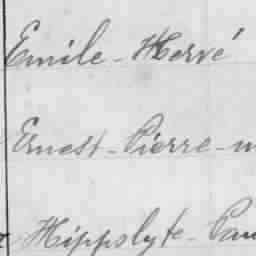 Emile - Hervé
Ernest - Pierre -
Hippolyte -